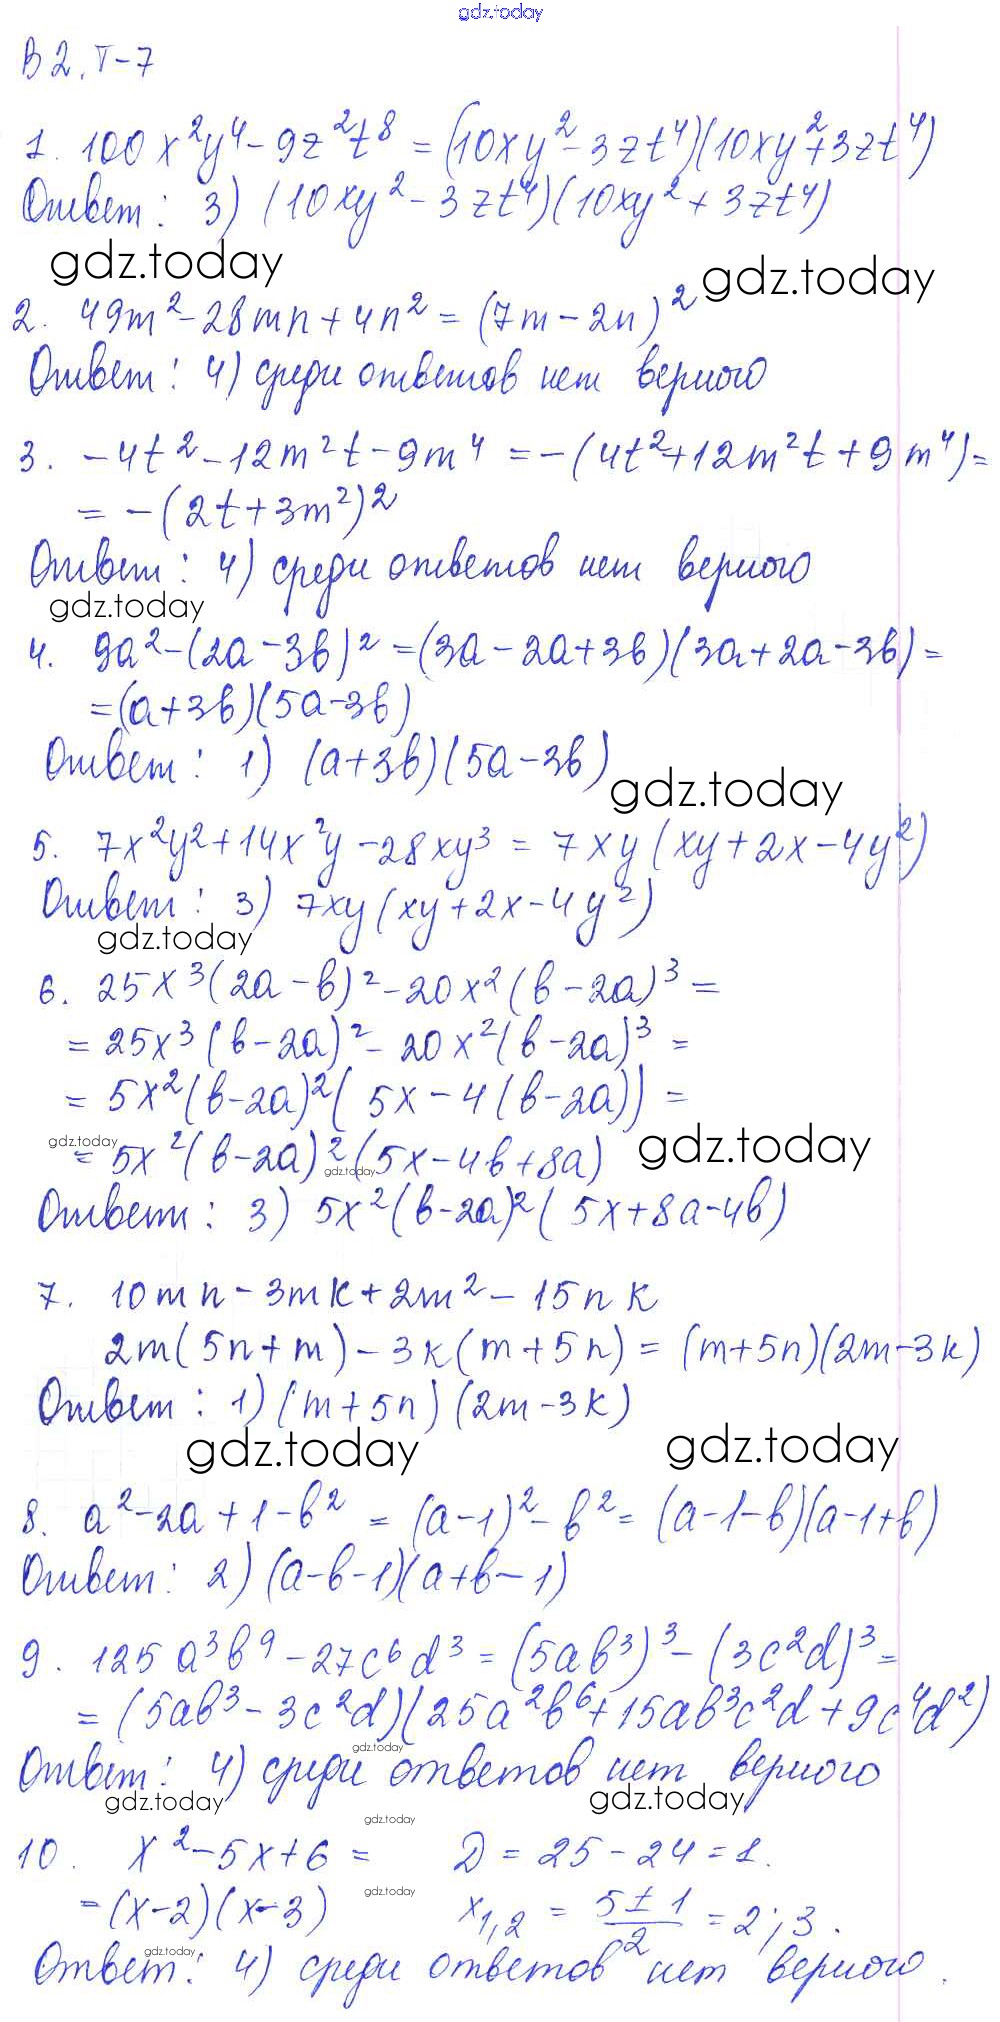 gdz.today
В2. Т-7
1. 100x²y⁴ - 9z²t⁸ = (10xy² - 3zt⁴)(10xy² + 3zt⁴)
Ответ: 3) (10xy² - 3zt⁴)(10xy² + 3zt⁴)
gdz.today gdz.today
2. 49m² - 28mn + 4n² = (7m - 2n)²
Ответ: 4) среди ответов нет верного
3. -4t² - 12m²t - 9m⁴ = -(4t² + 12m²t + 9m⁴) =
= -(2t + 3m²)²
Ответ: 4) среди ответов нет верного
gdz.today
4. 9a² - (2a - 3b)² = (3a - 2a + 3b)(3a + 2a - 3b) =
= (a + 3b)(5a - 3b)
Ответ: 1) (a + 3b)(5a - 3b)
gdz.today
5. 7x²y² + 14x²y - 28xy³ = 7xy(xy + 2x - 4y²)
Ответ: 3) 7xy(xy + 2x - 4y²)
gdz.today
6. 25x³(2a - b)² - 20x²(b - 2a)³ =
= 25x³(b - 2a)² - 20x²(b - 2a)³ =
= 5x²(b - 2a)²(5x - 4(b - 2a)) =
gdz.today gdz.today
= 5x²(b - 2a)²(5x - 4b + 8a)
gdz.today
Ответ: 3) 5x²(b - 2a)²(5x + 8a - 4b)
7. 10mn - 3mk + 2m² - 15nk
2m(5n + m) - 3k(m + 5n) = (m + 5n)(2m - 3k)
Ответ: 1) (m + 5n)(2m - 3k)
gdz.today gdz.today
8. a² - 2a + 1 - b² = (a - 1)² - b² = (a - 1 - b)(a - 1 + b)
Ответ: 2) (a - b - 1)(a + b - 1)
9. 125a³b⁹ - 27c⁶d³ = (5ab³)³ - (3c²d)³ =
= (5ab³ - 3c²d)(25a²b⁶ + 15ab³c²d + 9c⁴d²)
gdz.today
Ответ: 4) среди ответов нет верного
gdz.today gdz.today
gdz.today
10. x² - 5x + 6 = D = 25 - 24 = 1.
gdz.today
= (x - 2)(x - 3) x₁,₂ = (5 ± 1)/2 = 2; 3.
gdz.today
Ответ: 4) среди ответов нет верного.